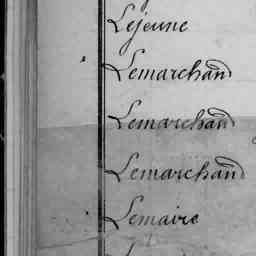 Lejeune
Lemarchand
Lemarchand
Lemarchand
Lemaire